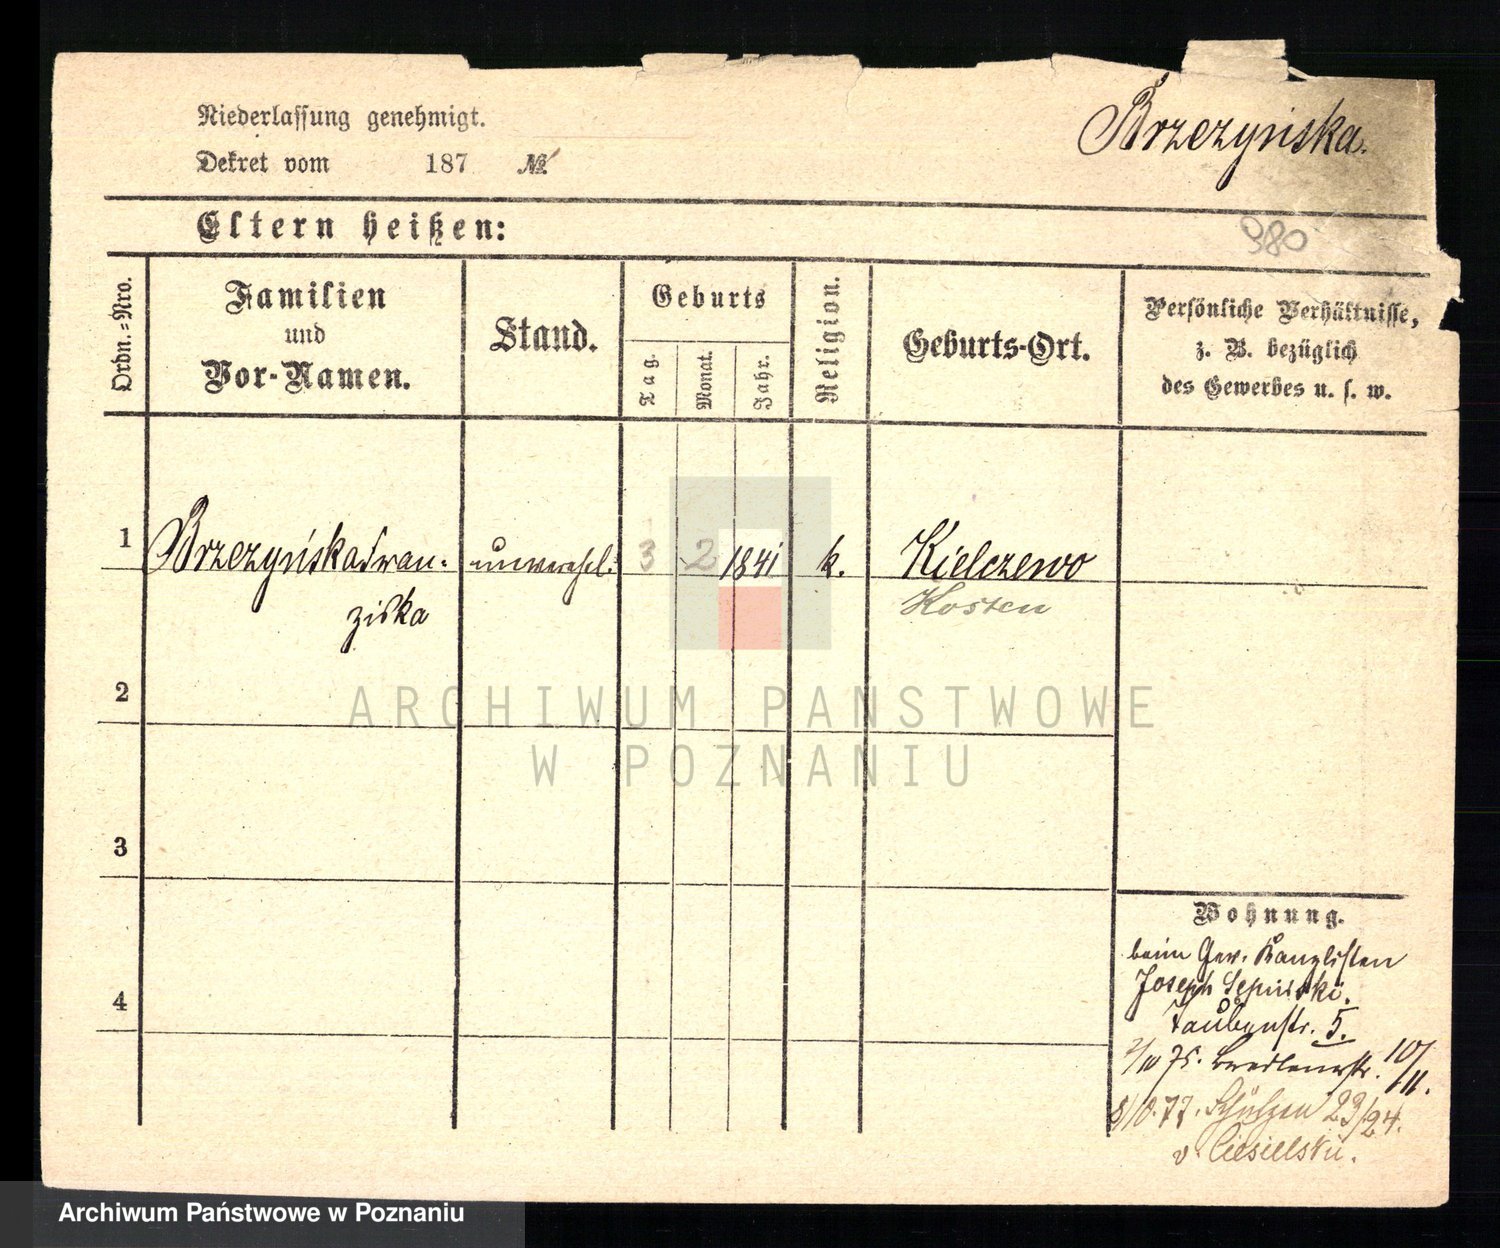 Niederlassung genehmigt.
Dekret vom 187 №
Brzezyńska.
980
Eltern heißen:
Ordn.=Nro.
Familien
und
Vor-Namen.
Stand.
Geburts
Tag.
Monat.
Jahr.
Religion.
Geburts-Ort.
Persönliche Verhältnisse,
z. B. bezüglich
des Gewerbes u. s. w.
1 Brzezyńska Fran- unverehel. 3 2 1841 k. Kielczewo
ziska Kosten
2
3
4
Wohnung.
beim Ger. Kanzlisten
Joseph
Taubenstr. 5.
2/10 75. 10/11.
8/10. 77. Schützen 23/24.
v Ciesielski.
ARCHIWUM PAŃSTWOWE
W POZNANIU
Archiwum Państwowe w Poznaniu